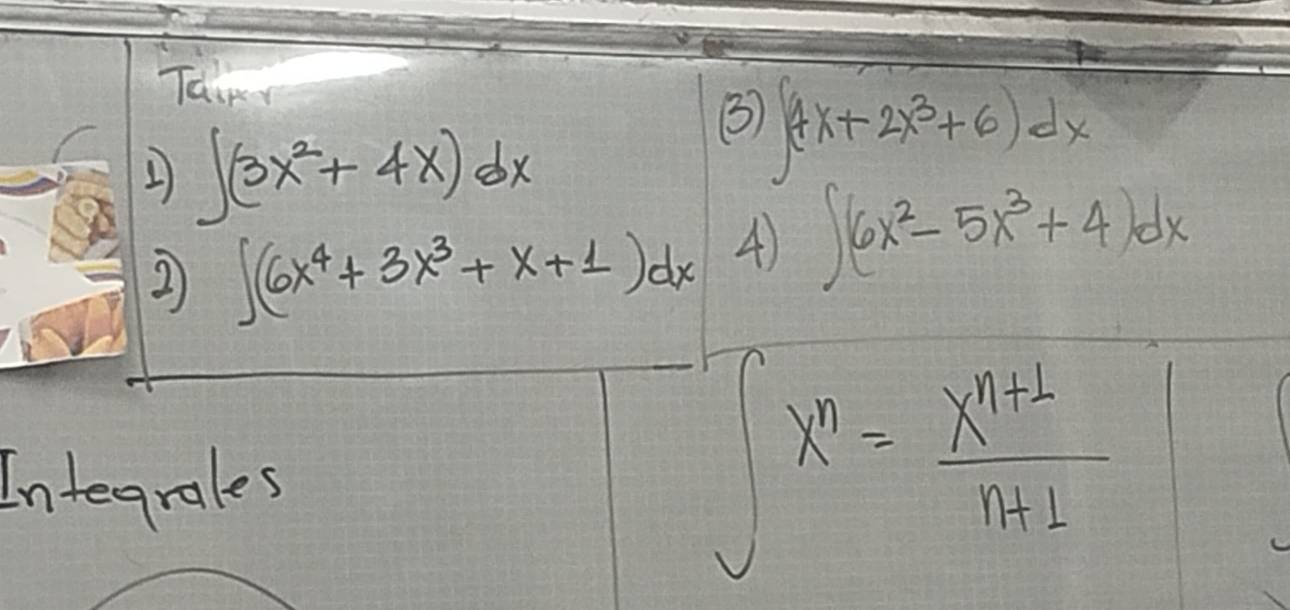 1) ∫(3x² + 4x) dx
2) ∫(6x⁴ + 3x³ + x + 1) dx
(3) ∫(4x + 2x³ + 6) dx
4) ∫(6x² - 5x³ + 4) dx
Integrales
∫ xⁿ = xⁿ⁺¹ / n+1